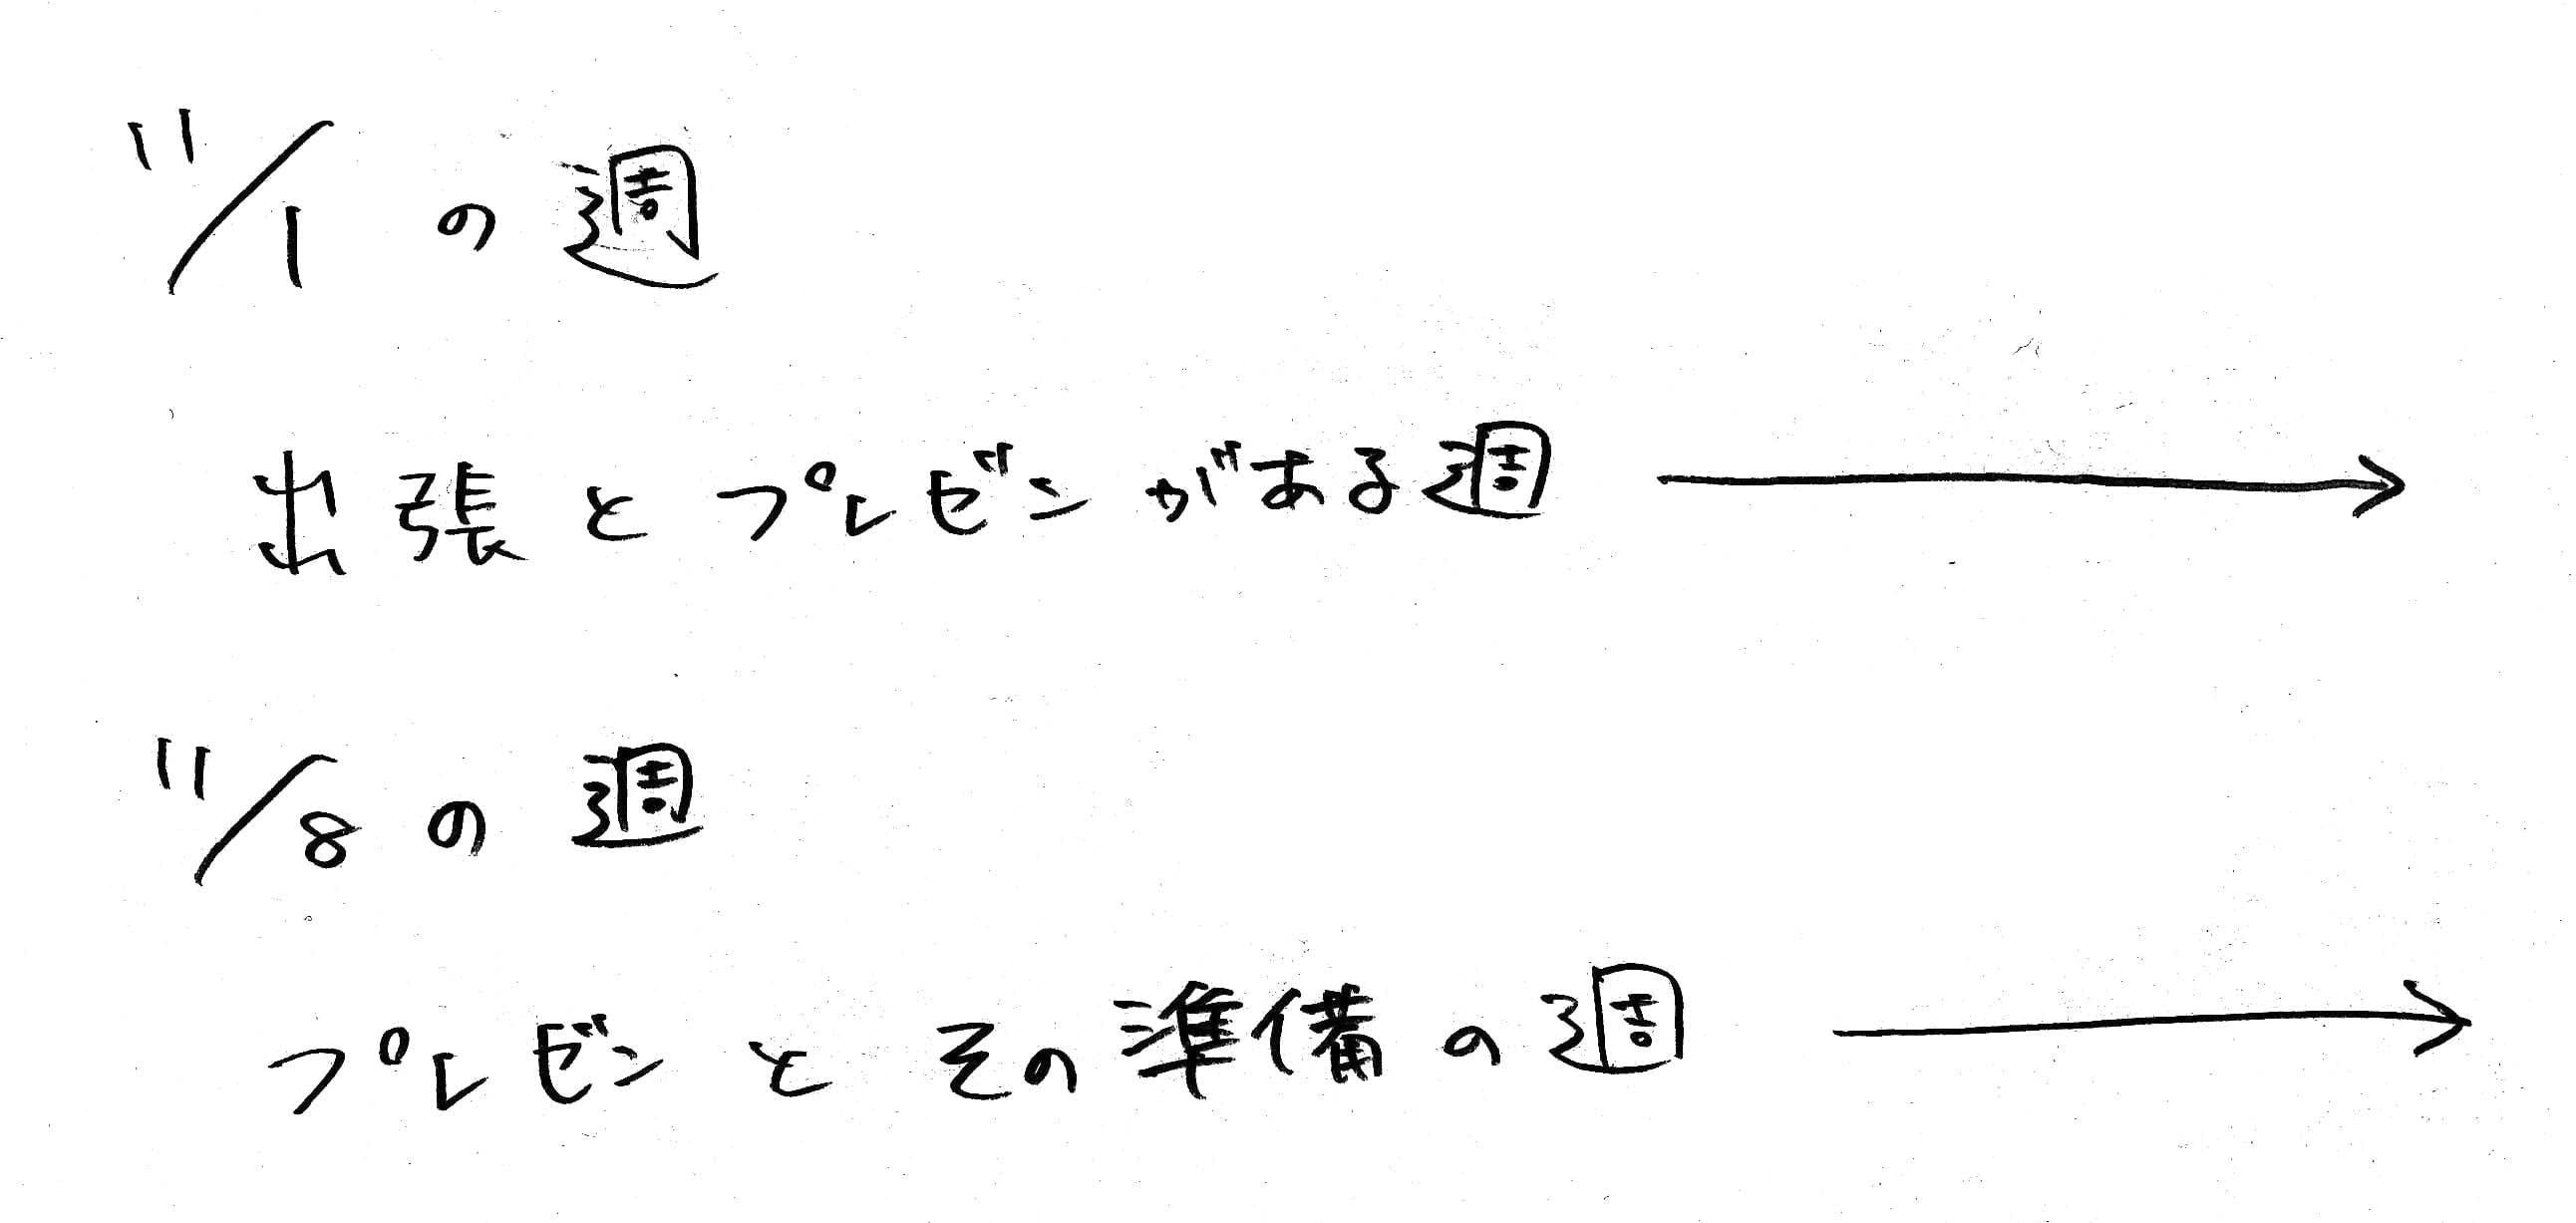 11/1 の週
出張とプレゼンがある週 →
11/8 の週
プレゼンとその準備の週 →